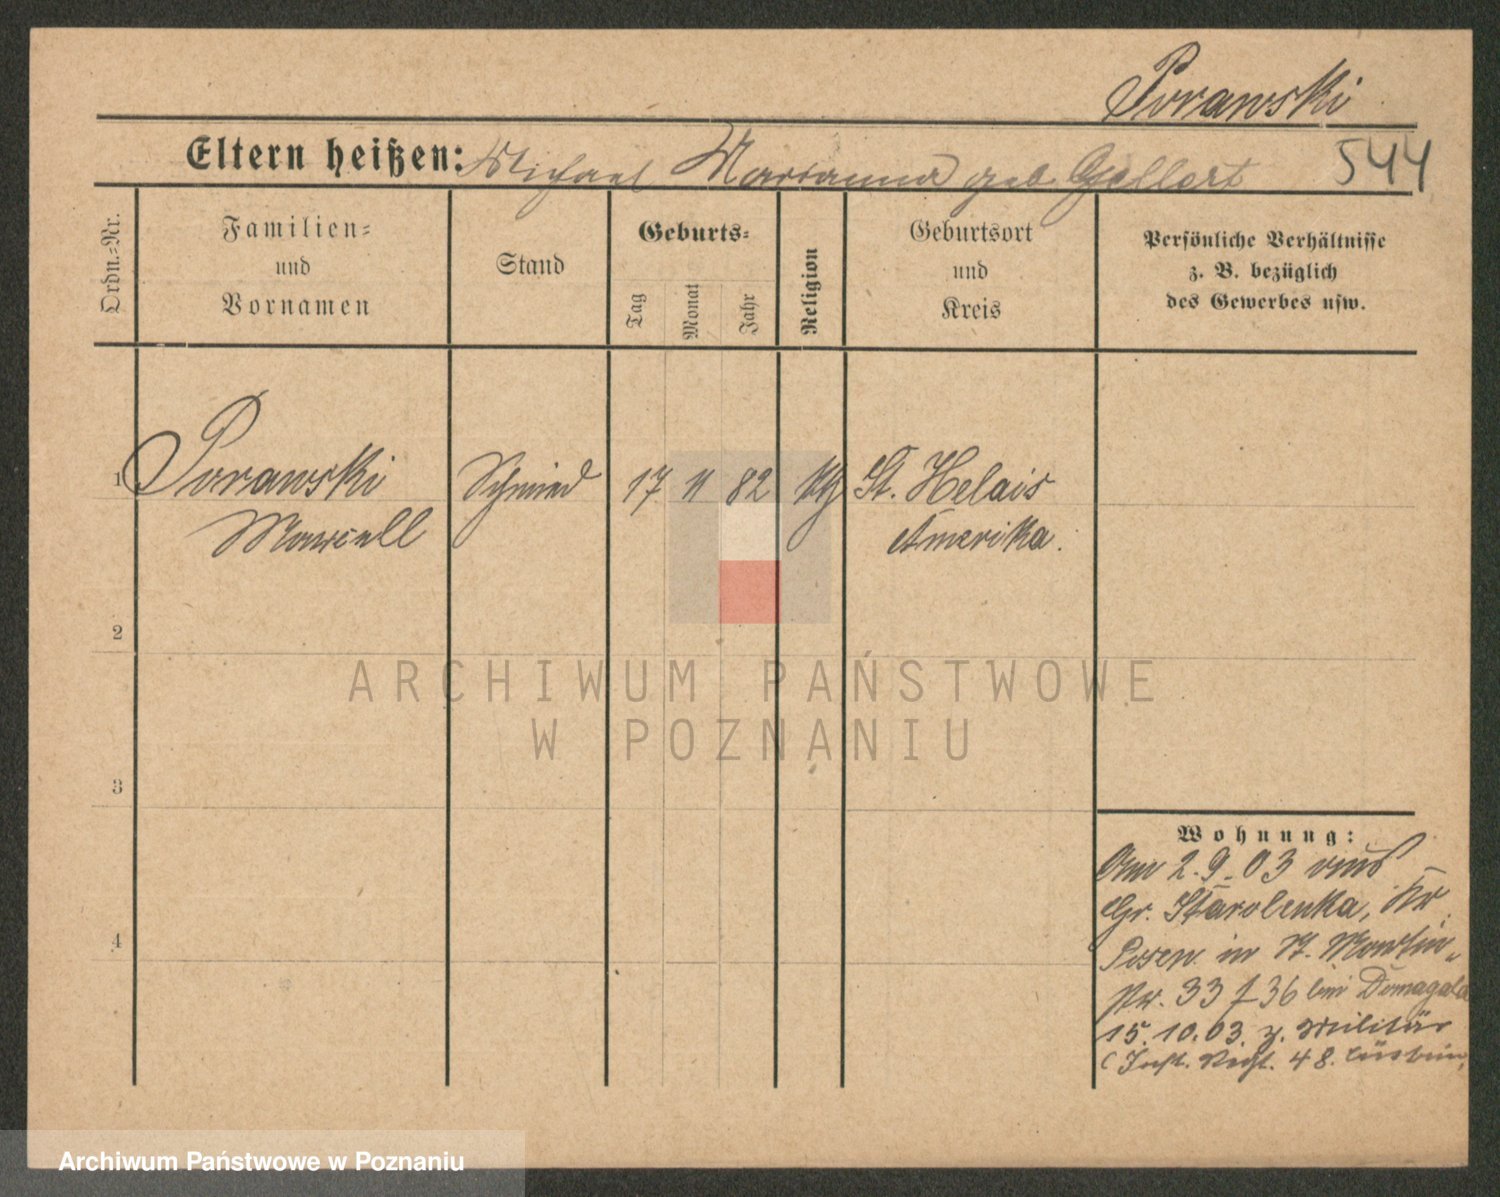 Porawski
Eltern heißen: Michael Marianna geb Gellert 544
Ordn.-Nr.
Familien-
und
Vornamen
Stand
Geburts-
Tag
Monat
Jahr
Religion
Geburtsort
und
Kreis
Persönliche Verhältnisse
z. B. bezüglich
des Gewerbes usw.
1 Porawski Schmied 17 11 82 kth St. Helais
Marcell Amerika.
2
3
4
Wohnung:
Am 2.9.03 aus
Gr. Starolenka, Kr.
Posen in St. Martin-
Str. 33 f 36 bei Domagala
15.10.03. z. Militär
(Inft. Regt. 48. Cüstrin,
ARCHIWUM PAŃSTWOWE
W POZNANIU
Archiwum Państwowe w Poznaniu